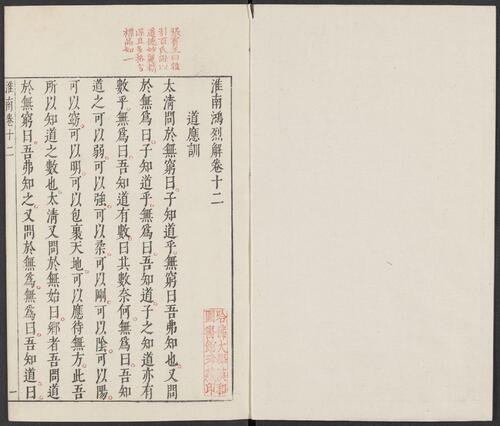 張賓王曰雜
引百氏證以
道德妙精
深且多格言
品如一
淮南鴻烈解卷十二
道應訓
太清問於無窮曰子知道乎無窮曰吾弗知也又問
於無爲曰子知道乎無爲曰吾知道子之知道亦有
數乎無爲曰吾知道有數曰其數奈何無爲曰吾知
道之可以弱可以強可以柔可以剛可以陰可以陽
可以窈可以明可以包裹天地可以應待無方此吾
所以知道之數也太清又問於無始曰鄉者吾問道
於無窮曰吾弗知之又問於無爲無爲曰吾知道曰
淮南卷十二
一
哈佛大學漢和
圖書館珍藏印